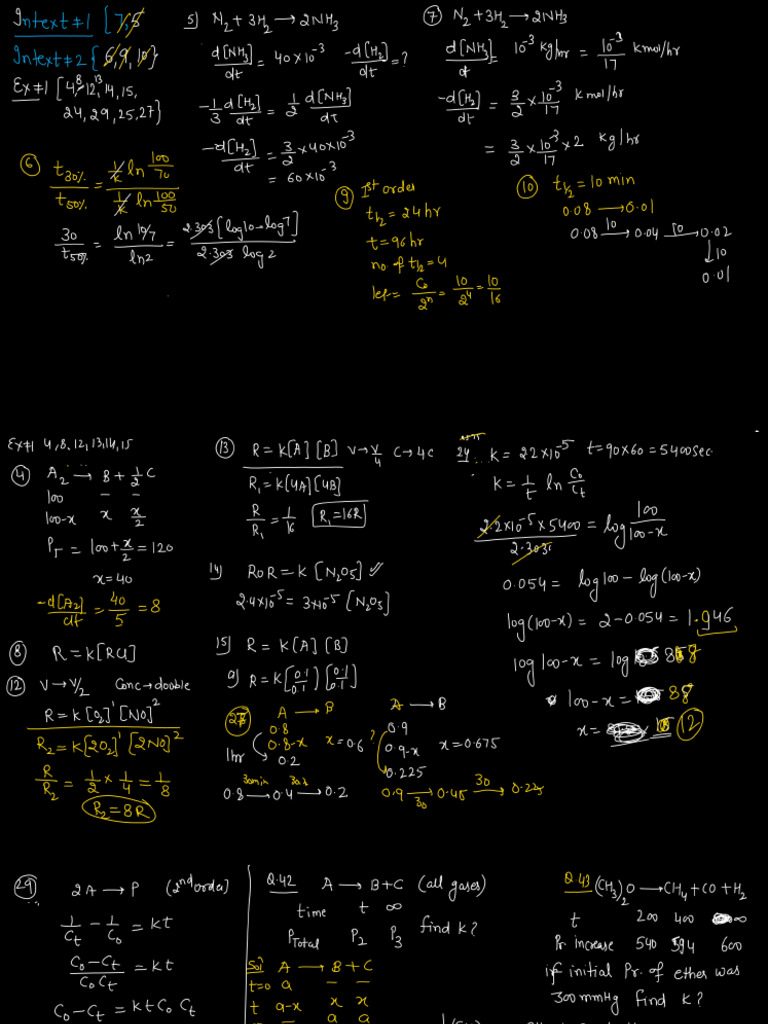 Intext #1 [7,5
Intext #2 {6,9,10}
Ex #1 [4,8,12,13,14,15,
24,29,25,27}
5) N2+3H2→2NH3
d[NH3]/dt = 40×10^-3   -d[H2]/dt = ?
-1/3 d[H2]/dt = 1/2 d[NH3]/dt
-d[H2]/dt = 3/2×40×10^-3
= 60×10^-3
7 N2+3H2→2NH3
d[NH3]/dt = 10^-3 kg/hr = 10^-3/17 kmol/hr
-d[H2]/dt = 3/2×10^-3/17 kmol/hr
= 3/2×10^-3/17×2 kg/hr
6 t30%/t50% = 1/k ln 100/70 / 1/k ln 100/50
30/t50% = ln 10/7 / ln2 = 2.303[log10-log7] / 2.303 log2
9 Ist order
t1/2 = 24hr
t = 96hr
no. of t1/2 = 4
left = C0/2^n = 10/2^4 = 10/16
10 t1/2 = 10 min
0.08 → 0.01
0.08 10→ 0.04 10→ 0.02
↓10
0.01
Ex #1 4,8,12,13,14,15
4 A2 → B + 1/2 C
100 - -
100-x x x/2
PT = 100+x/2 = 120
x=40
-d[A2]/dt = 40/5 = 8
8 R=K[RCl]
12 V→V/2 Conc→double
R=K[O2]^1[NO]^2
R2=K[2O2]^1[2NO]^2
R/R2 = 1/2×1/4 = 1/8
R2=8R
13 R=K[A][B] V→V/4 C→4C
R1=K[4A][4B]
R/R1 = 1/16 R1=16R
14) RoR=K[N2O5]✓
2.4×10^-5 = 3×10^-5[N2O5]
15) R=K[A][B]
9) R=K[0.1/0.1][0.1/0.1]
27 A → B
0.8
0.8-x x=0.6?
1hr 0.2
0.8 30min→ 0.4 30→ 0.2
A → B
0.9
0.9-x x=0.675
0.225
0.9 →30 0.45 30→ 0.225
24 K=22×10^-5 t=90×60=5400sec
K=1/t ln C0/Ct
2.2×10^-5×5400/2.303 = log 100/100-x
0.054 = log100-log(100-x)
log(100-x) = 2-0.054 = 1.946
log 100-x = log 88
100-x = 88
x = 12
29 2A → P (2nd order)
1/Ct - 1/C0 = Kt
C0-Ct/C0Ct = Kt
C0-Ct = KtC0Ct
Q.42 A → B+C (all gases)
time t ∞
PTotal P2 P3 find K?
Sol A → B+C
t=0 a - -
t a-x x x
- a a
Q.43 (CH3)2O → CH4+CO+H2
t 200 400 ∞
Pr increase 540 594 600
if initial Pr. of ether was
300mmHg find K?